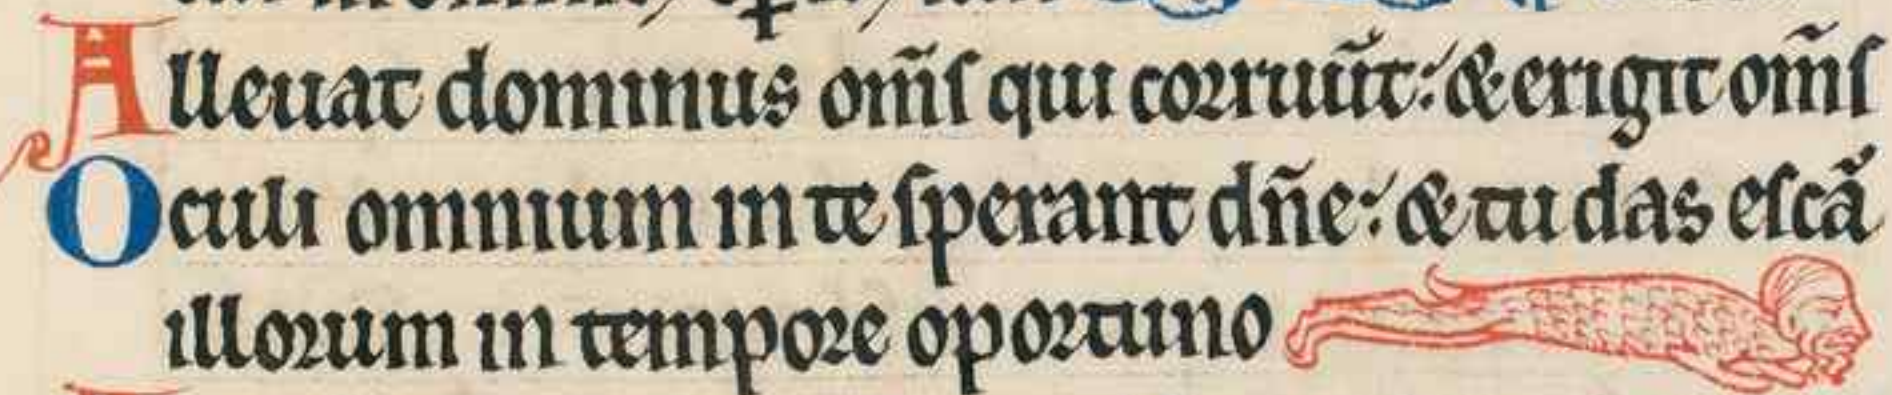 Alleuat dominus om̃s qui corruũt: & erigit om̃s
Oculi omnium in te sperant dñe: & tu das escã
illorum in tempore oportuno